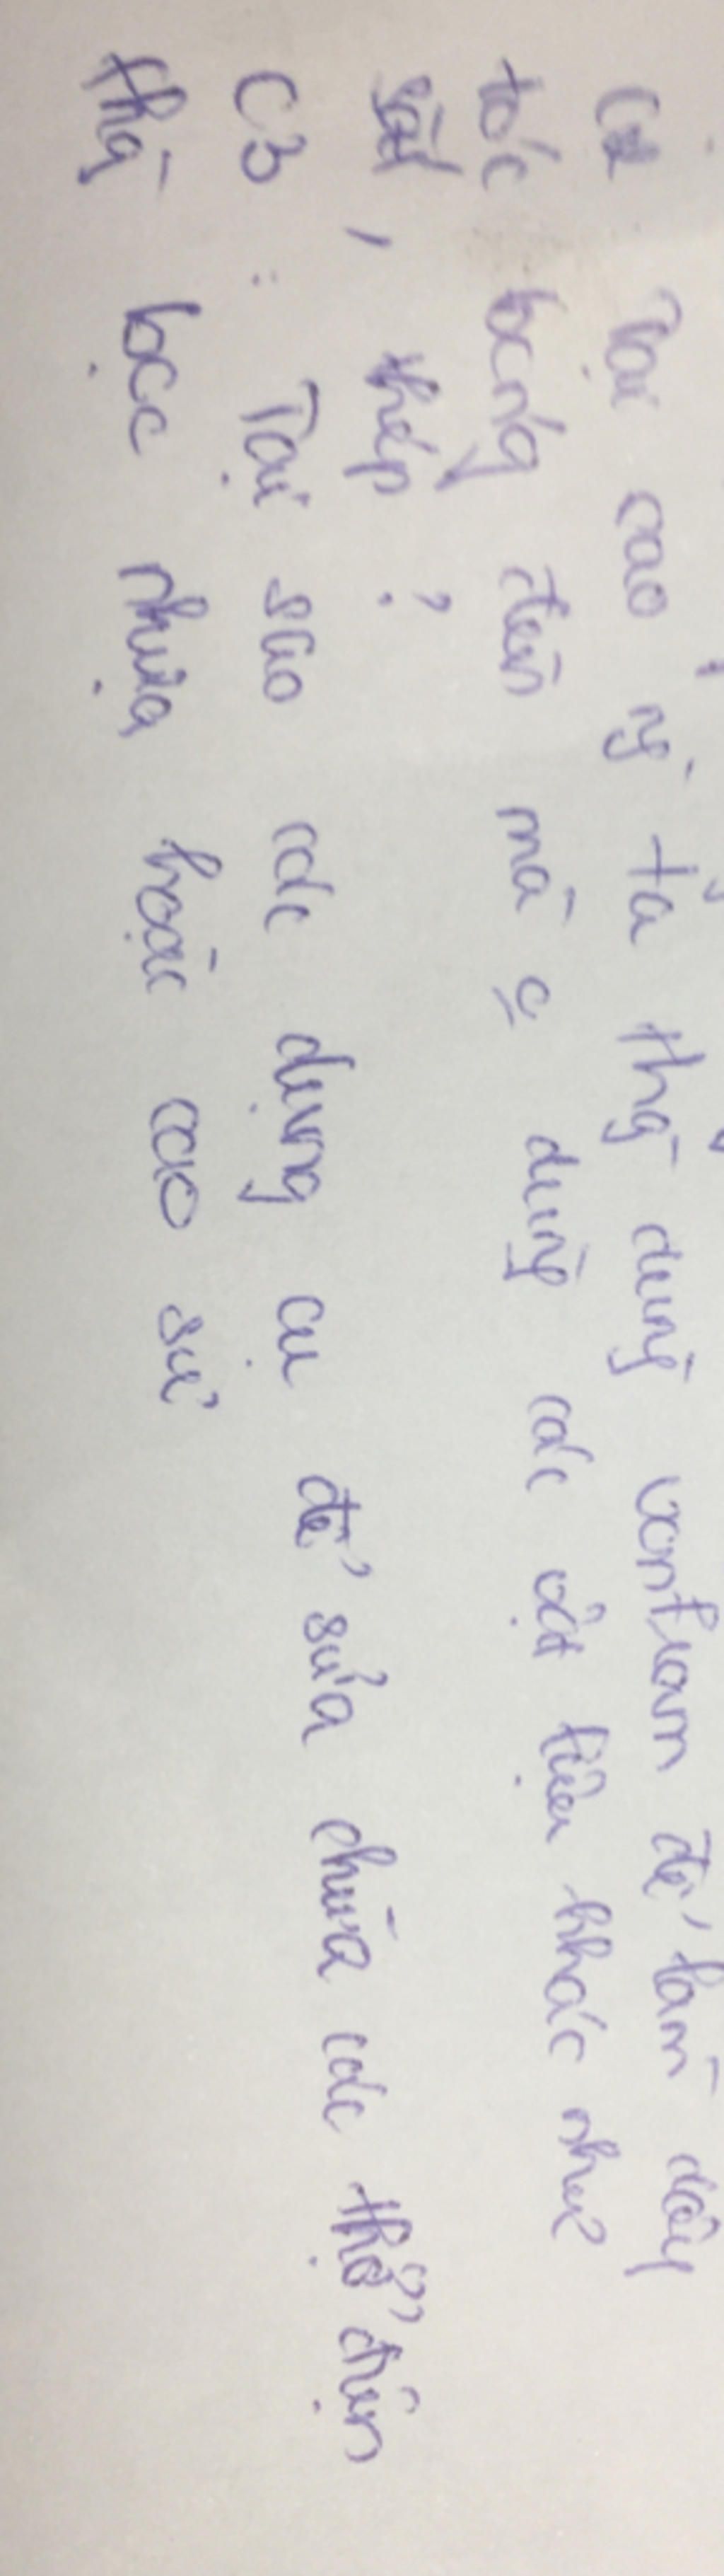 C2 Tại cao ý ta thg dùng vonfram để làm dây
tóc bóng đèn mà o dùng các vật liệu khác như
sắt, thép ?
C3 : Tại sao các dụng cụ để sửa chữa các thợ điện
thg bọc nhựa hoặc cao su